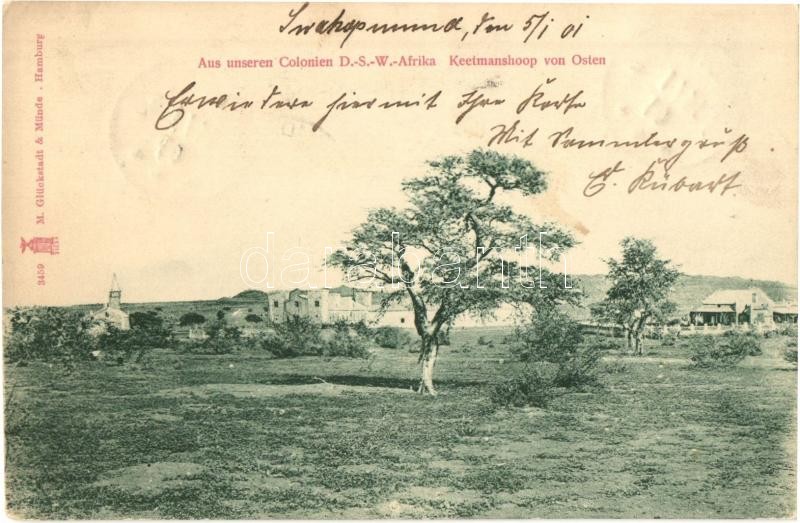 Swakopmund, den 5/1 01
Aus unseren Colonien D.-S.-W.-Afrika Keetmanshoop von Osten
Erwiedere hiermit Ihre Karte
Mit Sammlergruß
E. Kübart.
M. Glückstadt & Münde - Hamburg
3459
darabanth